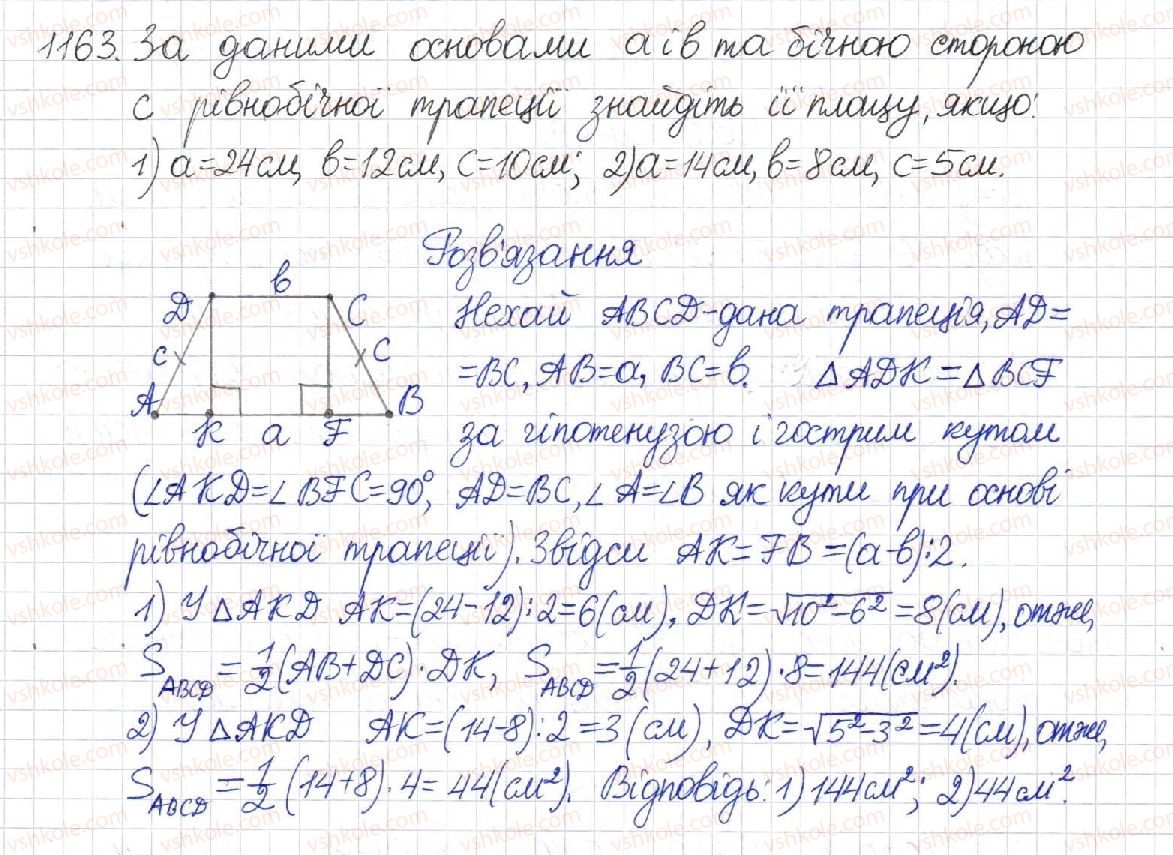 1163. За даними основами a і b та бічною стороною
c рівнобічної трапеції знайдіть її площу, якщо:
1) a=24см, b=12см, c=10см; 2) a=14см, b=8см, c=5см.
Розв'язання
b
D C
c C
A B
K a F
Нехай ABCD-дана трапеція, AD=
=BC, AB=a, BC=b. △ADK=△BCF
за гіпотенузою і гострим кутом
(∠AKD=∠BFC=90°, AD=BC, ∠A=∠B як кути при основі
рівнобічної трапеції). Звідси AK=FB=(a-b):2.
1) У △AKD AK=(24-12):2=6(см), DK=√10²-6²=8(см), отже,
S_ABCD=1/2(AB+DC)·DK, S_ABCD=1/2(24+12)·8=144(см²).
2) У △AKD AK=(14-8):2=3(см), DK=√5²-3²=4(см), отже,
S_ABCD=1/2(14+8)·4=44(см²). Відповідь: 1) 144см²; 2) 44см².